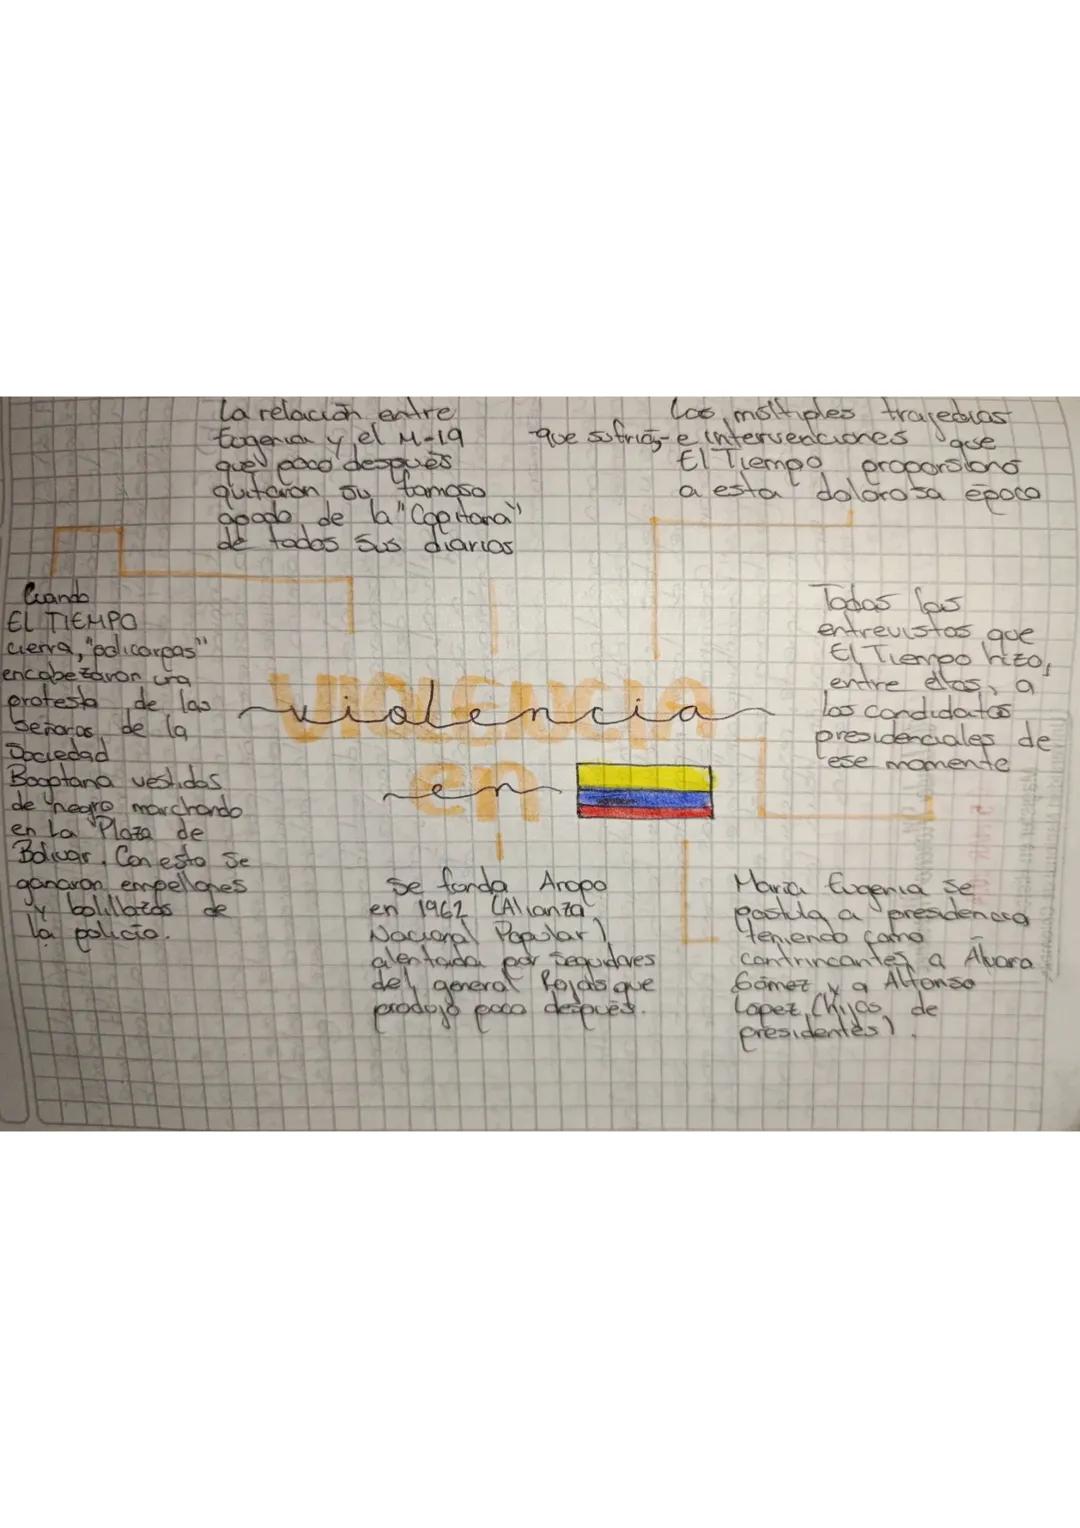 La relación entre
Eugenia y el M-19
que poco después
quitaron su famoso
apodo de la "Capitana"
de todos sus diarios
Las múltiples trajedias
que sufrió, e intervenciones que
El Tiempo proporsionó
a esta dolorosa época
Cuando
EL TIEMPO
cierra, "policarpas"
encabezaron una
protesta de las
Señoras de la
Sociedad
Bogotana vestidas
de negro marchando
en La Plaza de
Bolivar. Con esto se
ganaron empellones
y bolillazos de
la policía.
Todas las
entrevistas que
El Tiempo hizo,
entre ellas, a
los candidatos
presidenciales de
ese momento
VIOLENCIA
violencia
en
en
Se funda Anapo
en 1962 (Alianza
Nacional Popular)
alentada por seguidores
del general Rojas que
produjo poco después.
María Eugenia se
postula a presidencia
teniendo como
contrincantes a Álvaro
Gómez y a Alfonso
Lopez (hijos de
presidentes).